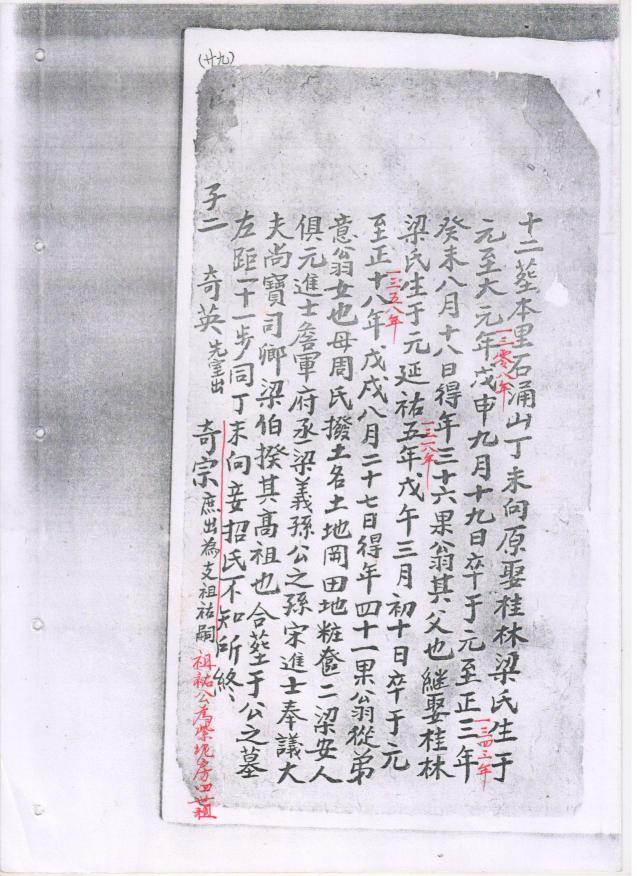 (廿九)
十二塟本里石涌山丁未向原娶桂林梁氏生于
元至大元年戊申九月十九日卒于元至正三年
一三零八年
一三四三年
癸未八月十八日得年三十六果公翁其父也繼娶桂林
梁氏生于元延祐五年戊午三月初十日卒于元
一三一八年
至正十八年戊戌八月二十七日得年四十一果公翁從弟
一三五八年
意翁女也母周氏撥土名土地岡田地粧奩二梁安人
俱元進士詹軍府丞梁義孫公之孫宋進士奉議大
夫尚寶司卿梁伯揆其高祖也合塟于公之墓
左距一十一步同丁未向妾招氏不知所終、
子二 奇英先室出 奇宗庶出為支祖祐嗣
祖祐公為 房四世祖